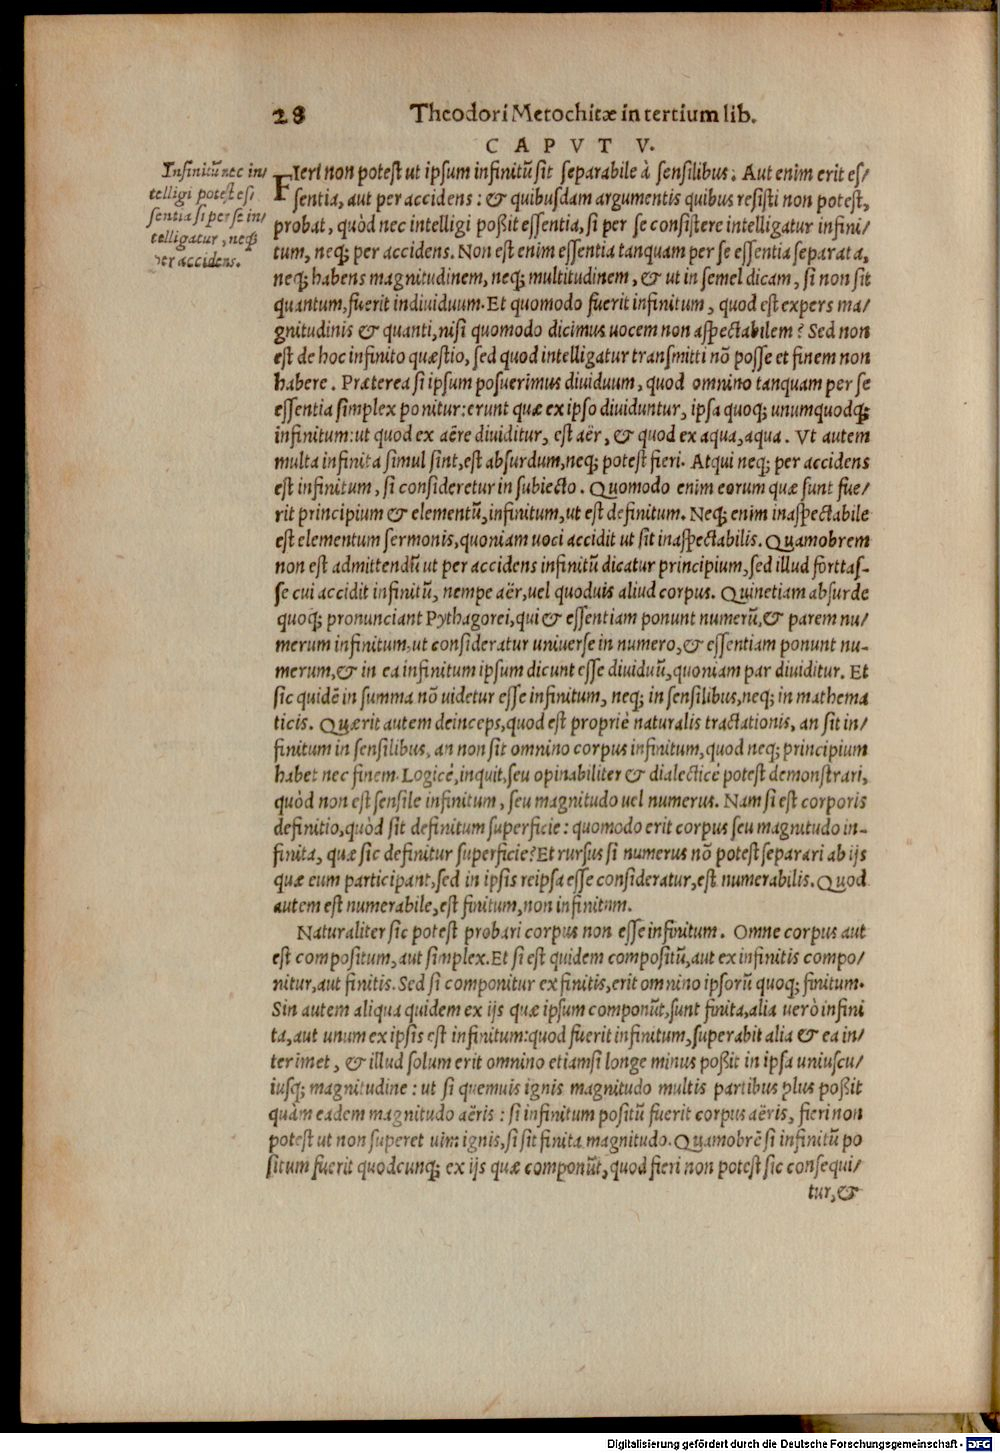 28 Theodori Metochitæ in tertium lib.
CAPVT V.
Infinitũ nec in/
telligi potest es/
sentia si per se in/
telligatur, neq;
per accidens.
FIeri non potest ut ipsum infinitũ sit separabile à sensilibus. Aut enim erit es/
sentia, aut per accidens: & quibusdam argumentis quibus resisti non potest,
probat, quòd nec intelligi poßit essentia, si per se consistere intelligatur infini/
tum, neq; per accidens. Non est enim essentia tanquam per se essentia separata,
neq; habens magnitudinem, neq; multitudinem, & ut in semel dicam, si non sit
quantum, fuerit indiuiduum. Et quomodo fuerit infinitum, quod est expers ma/
gnitudinis & quanti, nisi quomodo dicimus uocem non aspectabilem? Sed non
est de hoc infinito quæstio, sed quod intelligatur transmitti nõ posse et finem non
habere. Præterea si ipsum posuerimus diuiduum, quod omnino tanquam per se
essentia simplex ponitur: erunt quæ ex ipso diuiduntur, ipsa quoq; unumquodq;
infinitum: ut quod ex aëre diuiditur, est aër, & quod ex aqua, aqua. Vt autem
multa infinita simul sint, est absurdum, neq; potest fieri. Atqui neq; per accidens
est infinitum, si consideretur in subiecto. Quomodo enim eorum quæ sunt fue/
rit principium & elementũ, infinitum, ut est definitum. Neq; enim inaspectabile
est elementum sermonis, quoniam uoci accidit ut sit inaspectabilis. Quamobrem
non est admittendũ ut per accidens infinitũ dicatur principium, sed illud forttas-
se cui accidit infinitũ, nempe aër, uel quoduis aliud corpus. Quinetiam absurde
quoq; pronunciant Pythagorei, qui & essentiam ponunt numerũ, & parem nu/
merum infinitum, ut consideratur uniuerse in numero, & essentiam ponunt nu-
merum, & in ea infinitum ipsum dicunt esse diuiduũ, quoniam par diuiditur. Et
sic quidẽ in summa nõ uidetur esse infinitum, neq; in sensilibus, neq; in mathema
ticis. Quærit autem deinceps, quod est propriè naturalis tractationis, an sit in/
finitum in sensilibus, an non sit omnino corpus infinitum, quod neq; principium
habet nec finem. Logicè, inquit, seu opinabiliter & dialecticè potest demonstrari,
quòd non est sensile infinitum, seu magnitudo uel numerus. Nam si est corporis
definitio, quòd sit definitum superficie: quomodo erit corpus seu magnitudo in-
finita, quæ sic definitur superficie? Et rursus si numerus nõ potest separari ab ijs
quæ eum participant, sed in ipsis reipsa esse consideratur, est numerabilis. Quod
autem est numerabile, est finitum, non infinitum.
Naturaliter sic potest probari corpus non esse infinitum. Omne corpus aut
est compositum, aut simplex. Et si est quidem compositũ, aut ex infinitis compo/
nitur, aut finitis. Sed si componitur ex finitis, erit omnino ipsorũ quoq; finitum.
Sin autem aliqua quidem ex ijs quæ ipsum componũt, sunt finita, alia uerò infini
ta, aut unum ex ipsis est infinitum: quod fuerit infinitum, superabit alia & ea in/
terimet, & illud solum erit omnino etiamsi longe minus poßit in ipsa uniuscu/
iusq; magnitudine: ut si quemuis ignis magnitudo multis partibus plus poßit
quàm eadem magnitudo aëris: si infinitum positũ fuerit corpus aëris, fieri non
potest ut non superet uim ignis, si sit finita magnitudo. Quamobrẽ si infinitũ po
situm fuerit quodcunq; ex ijs quæ componũt, quod fieri non potest sic consequi/
tur, &
Digitalisierung gefördert durch die Deutsche Forschungsgemeinschaft - DFG